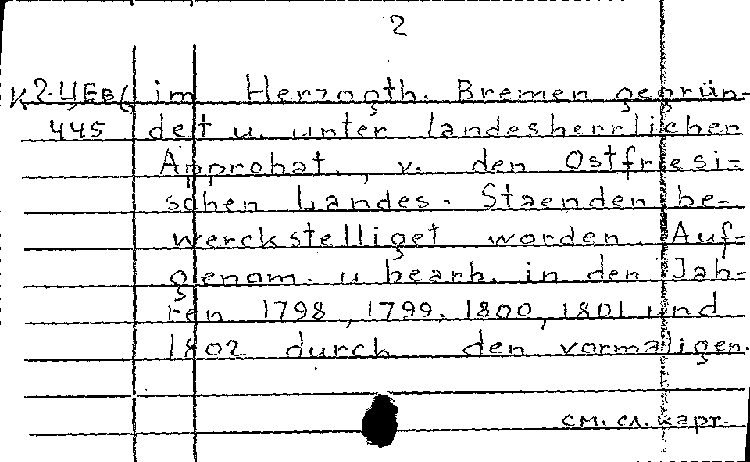 2
К2-ЦЕв/ im Herzogth. Bremen gegrün-
445 det u. unter landesherrlichen
Approbat., v. den Ostfriesi-
schen Landes-Staenden be-
werckstelliget worden. Auf-
genom. u bearb. in den Jah-
ren 1798, 1799, 1800, 1801 und
1802 durch den vormaligen
см. сл. карт.